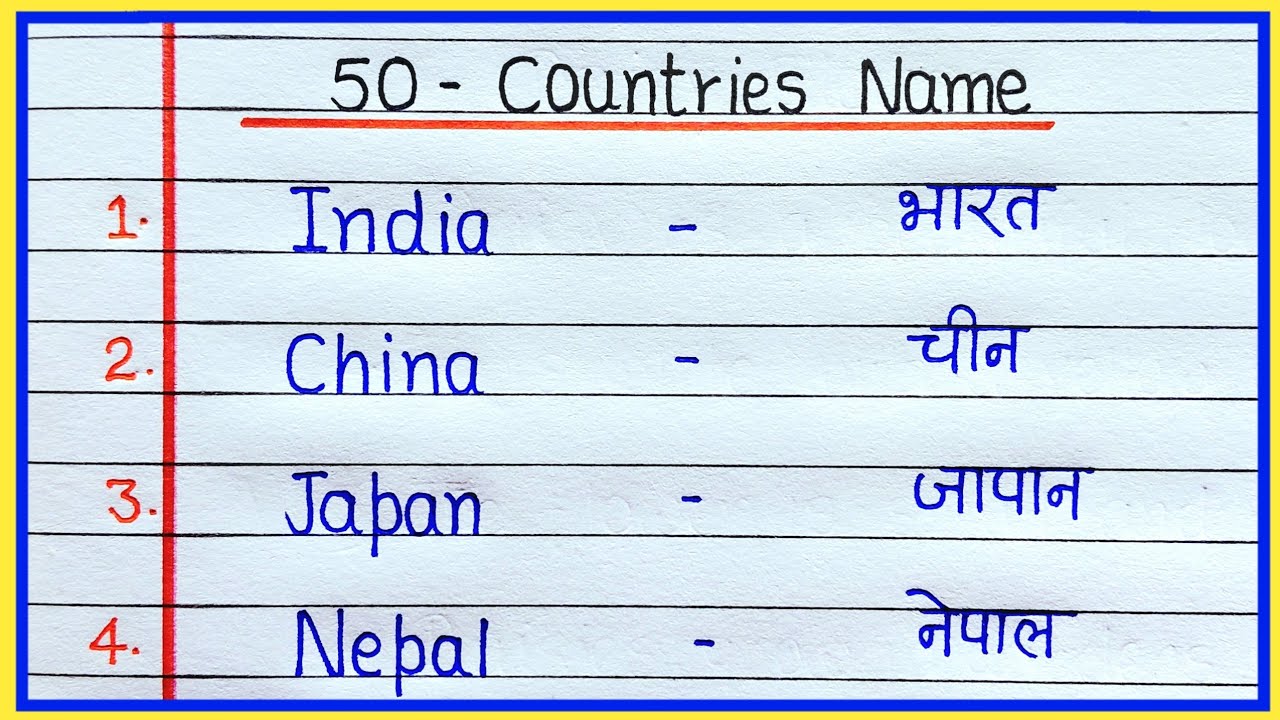 50 - Countries Name
1. India - भारत
2. China - चीन
3. Japan - जापान
4. Nepal - नेपाल